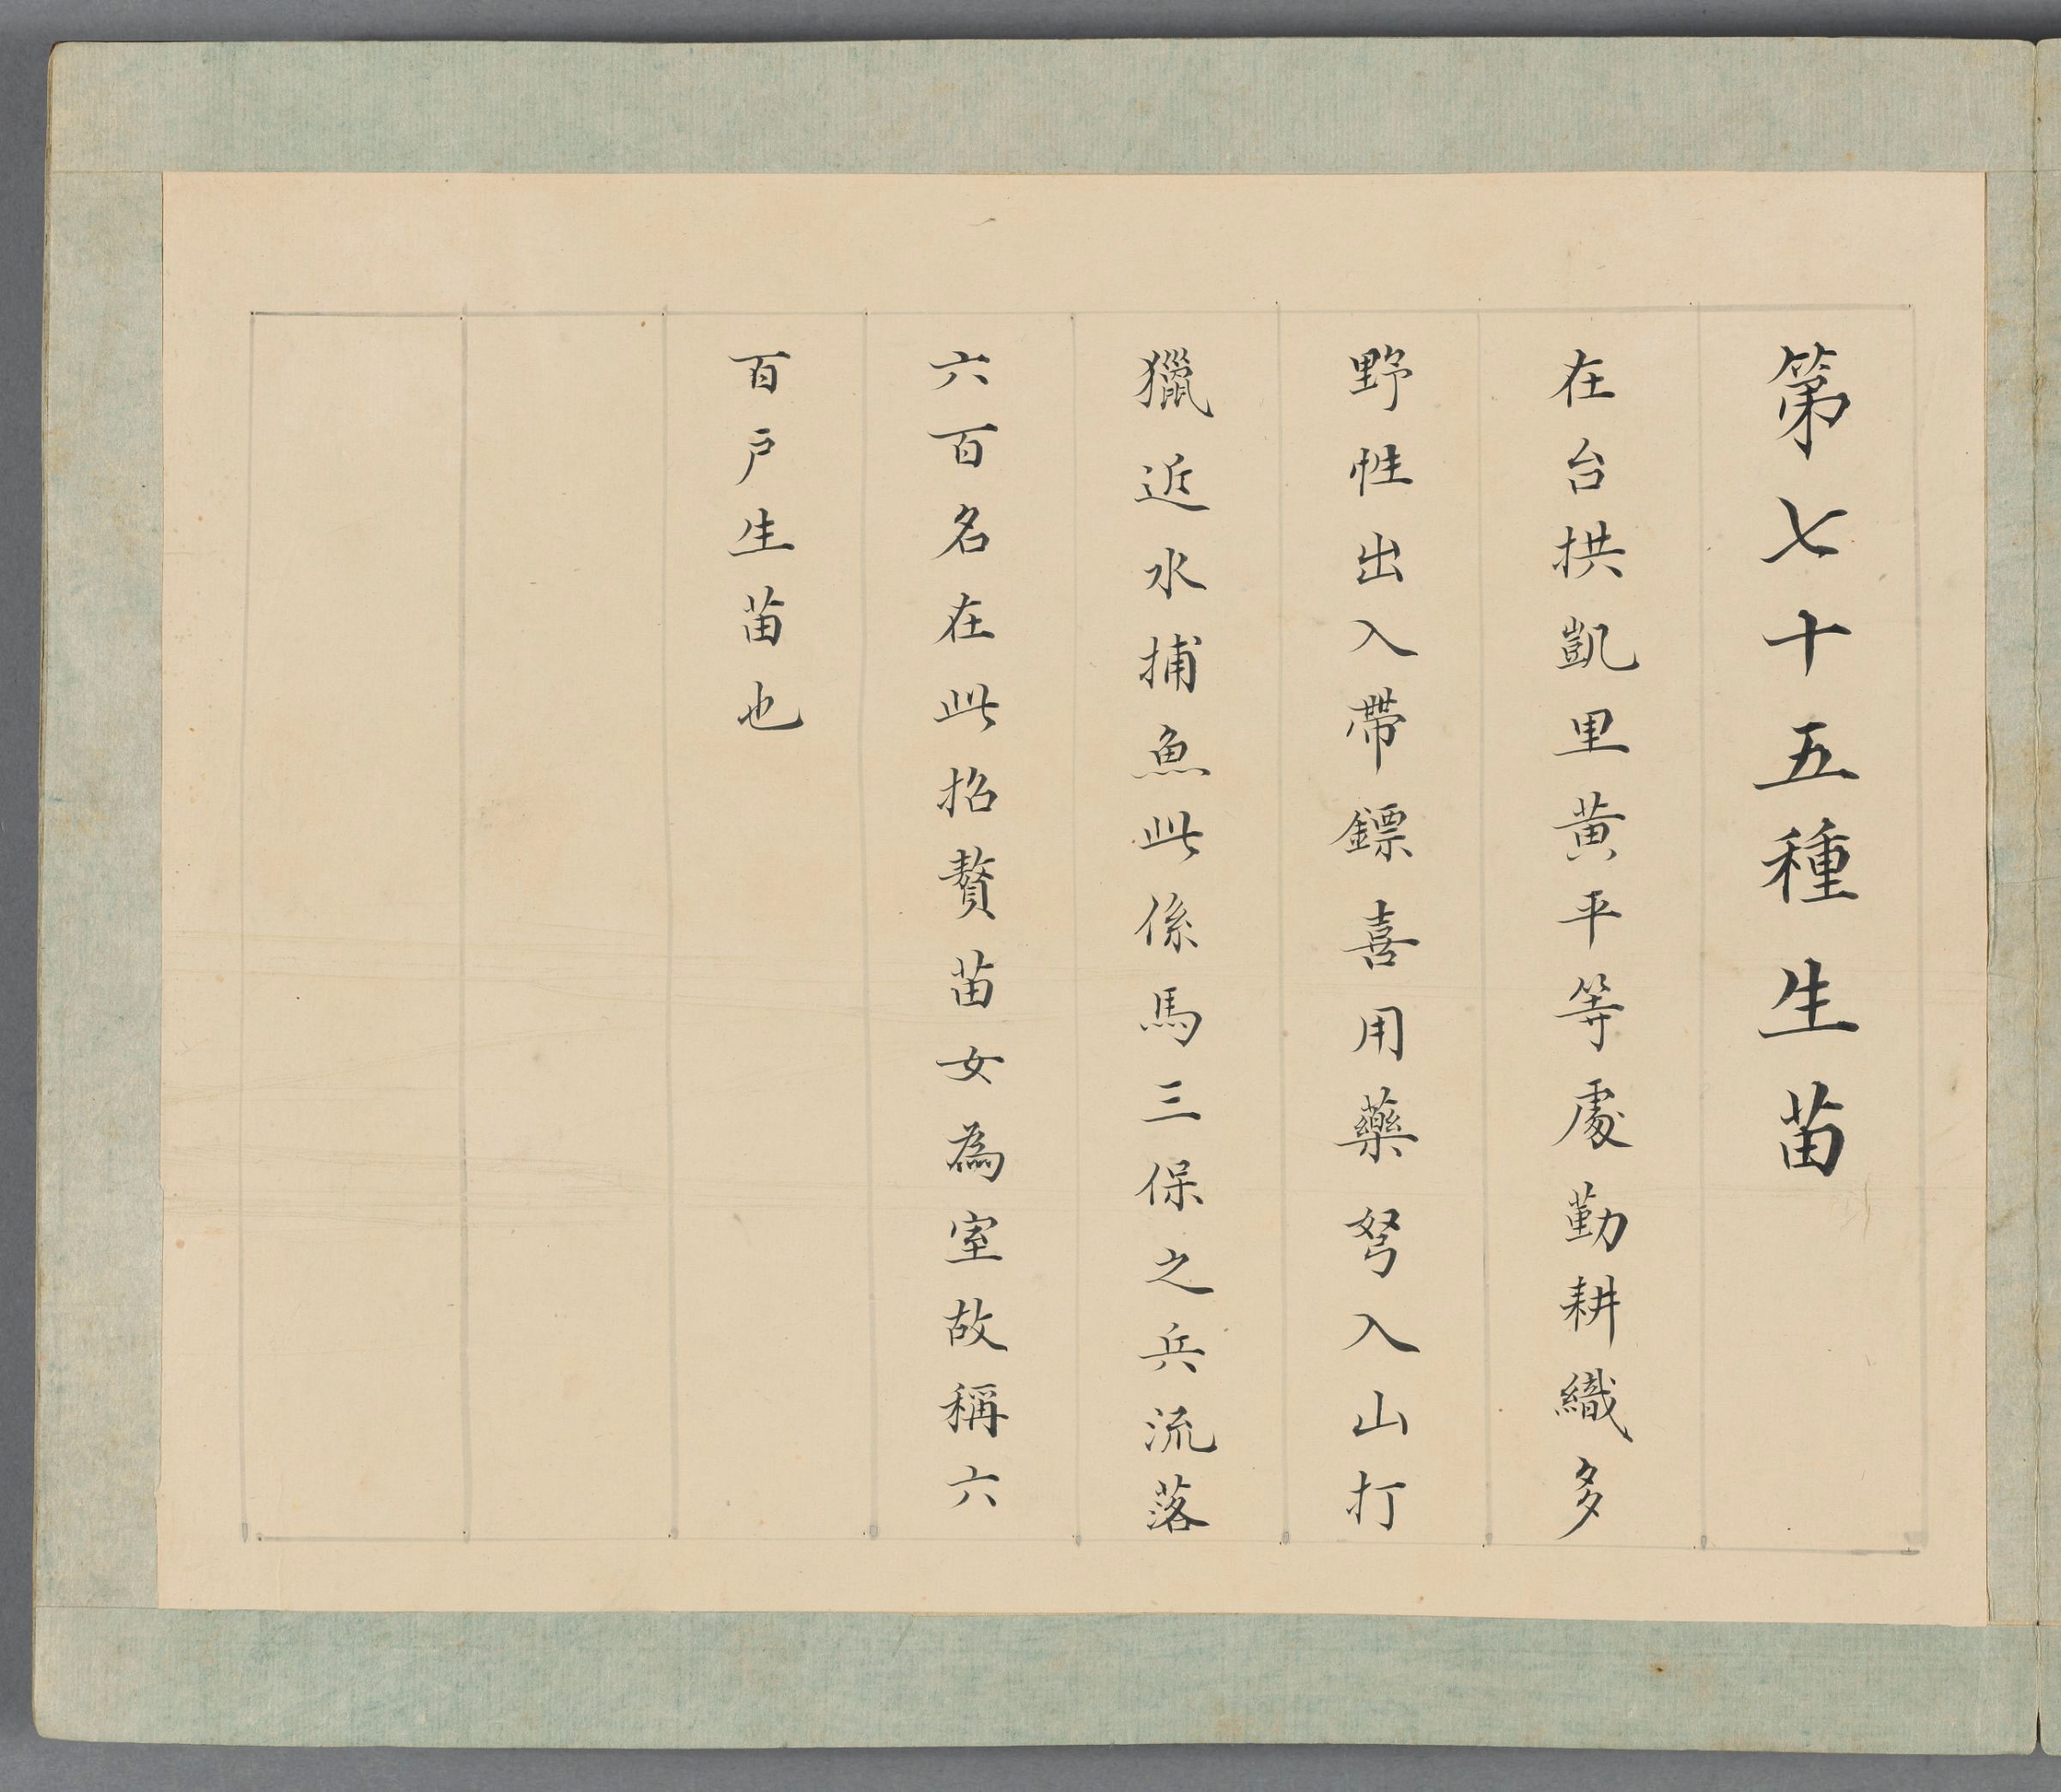 第七十五種生苗
在台拱凱里黄平等處勤耕織多
野性出入帶鏢喜用藥弩入山打
獵近水捕魚此係馬三保之兵流落
六百名在此招贅苗女為室故稱六
百戶生苗也